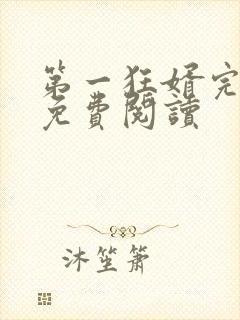 第一狂婿完
免費閱讀
沐笙簫